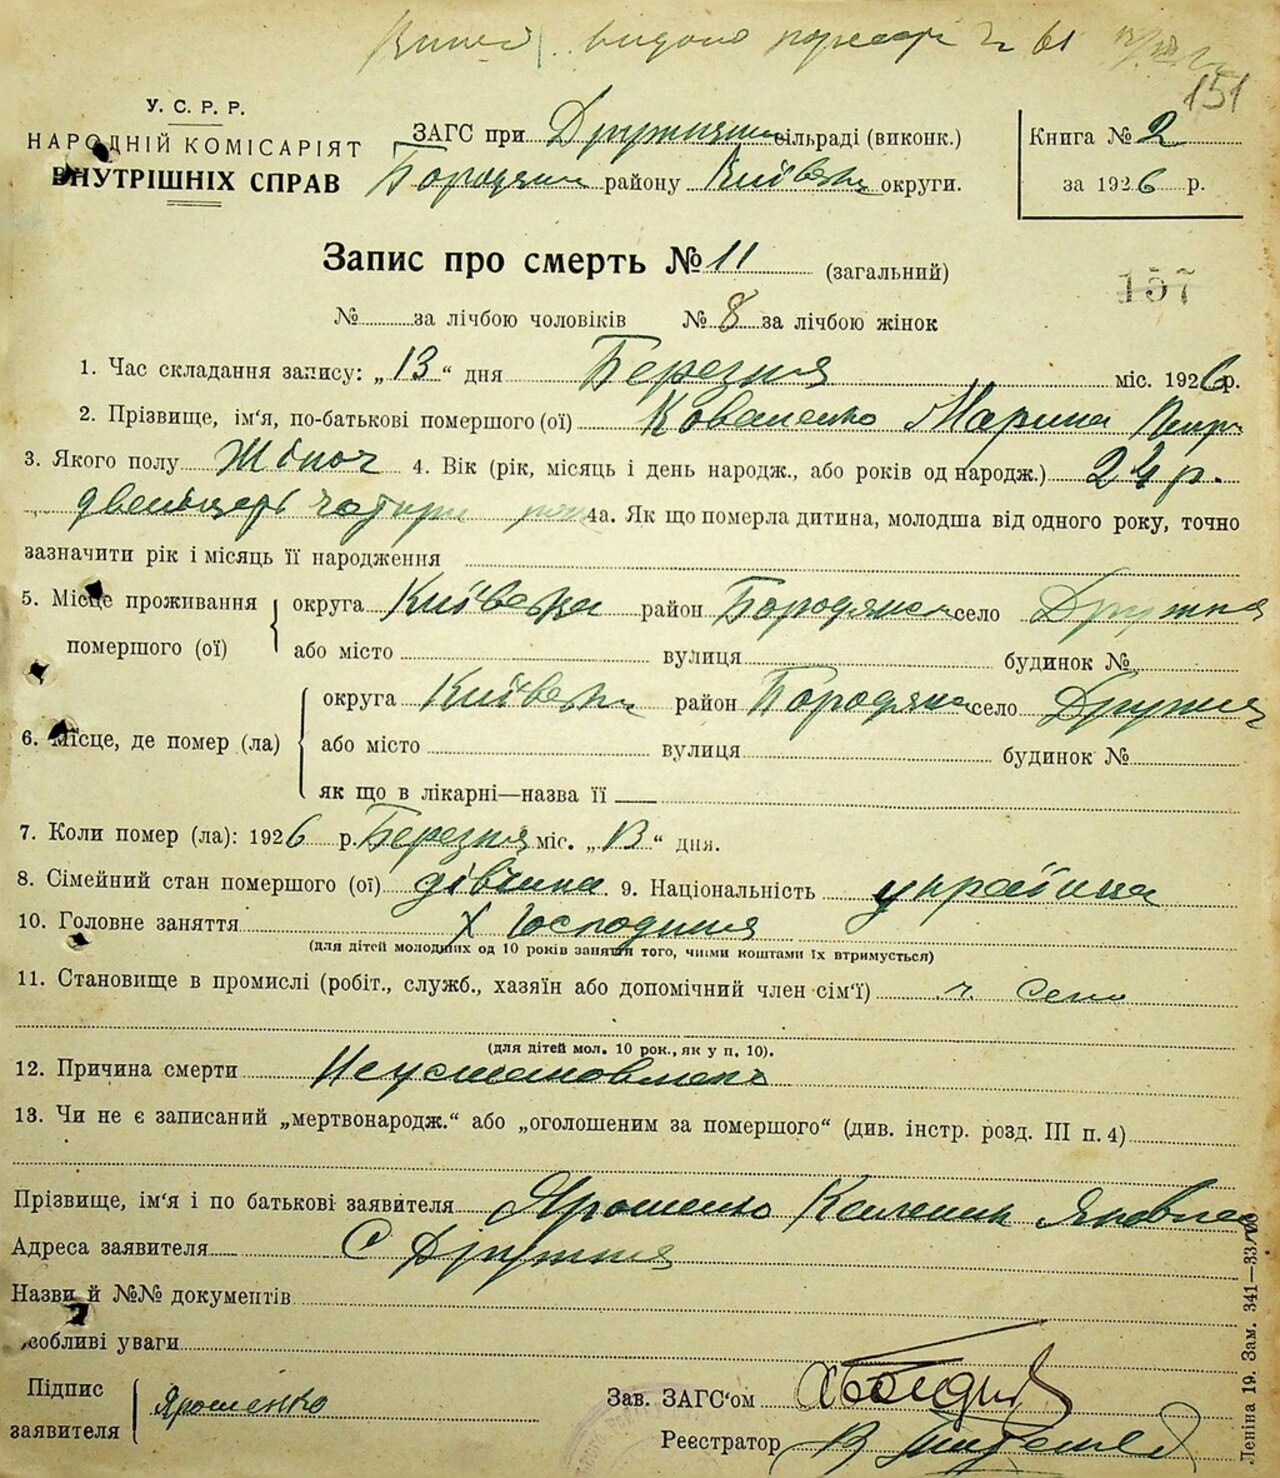 видано
151
У. С. Р. Р.
НАРОДНІЙ КОМІСАРІЯТ
ВНУТРІШНІХ СПРАВ
ЗАГС при Дружнян сільраді (виконк.)
Бородян району Київськ округи.
Книга № 2
за 1926 р.
Запис про смерть № 11 (загальний)
157
№ за лічбою чоловіків № 8 за лічбою жінок
1. Час складання запису: „13“ дня Березня міс. 1926 р.
2. Прізвище, ім‘я, по-батькові помершого (ої) Коваленко Марина Петр
3. Якого полу Жіноч 4. Вік (рік, місяць і день народж., або років од народж.) 24 р.
двадцять чотири 4а. Як що померла дитина, молодша від одного року, точно
зазначити рік і місяць її народження
5. Місце проживання помершого (ої) округа Київська район Бородянськ село Дружня
або місто вулиця будинок №
6. Місце, де помер (ла) округа Київськ район Бородянськ село Дружня
або місто вулиця будинок №
як що в лікарні—назва її
7. Коли помер (ла): 1926 р. Березня міс. „13“ дня.
8. Сімейний стан помершого (ої) дівчина 9. Національність українка
10. Головне заняття х Господиня
(для дітей молодших од 10 років заняття того, чиїми коштами їх втримується)
11. Становище в промислі (робіт., служб., хазяїн або допомічний член сім‘ї) ч. семї
(для дітей мол. 10 рок., як у п. 10).
12. Причина смерти Неустановлена
13. Чи не є записаний „мертвонародж.“ або „оголошеним за помершого“ (див. інстр. розд. III п. 4)
Прізвище, ім‘я і по батькові заявителя Ярошенко Каленик Яковлев
Адреса заявителя С Дружня
Назви й №№ документів
Особливі уваги
Підпис заявителя Ярошенко
Зав. ЗАГС‘ом
Реєстратор
Леніна 19. Зам. 341—33/00